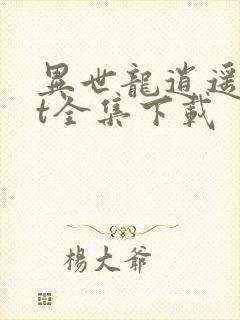 異世龍逍遥
t全集下載
楊大爺